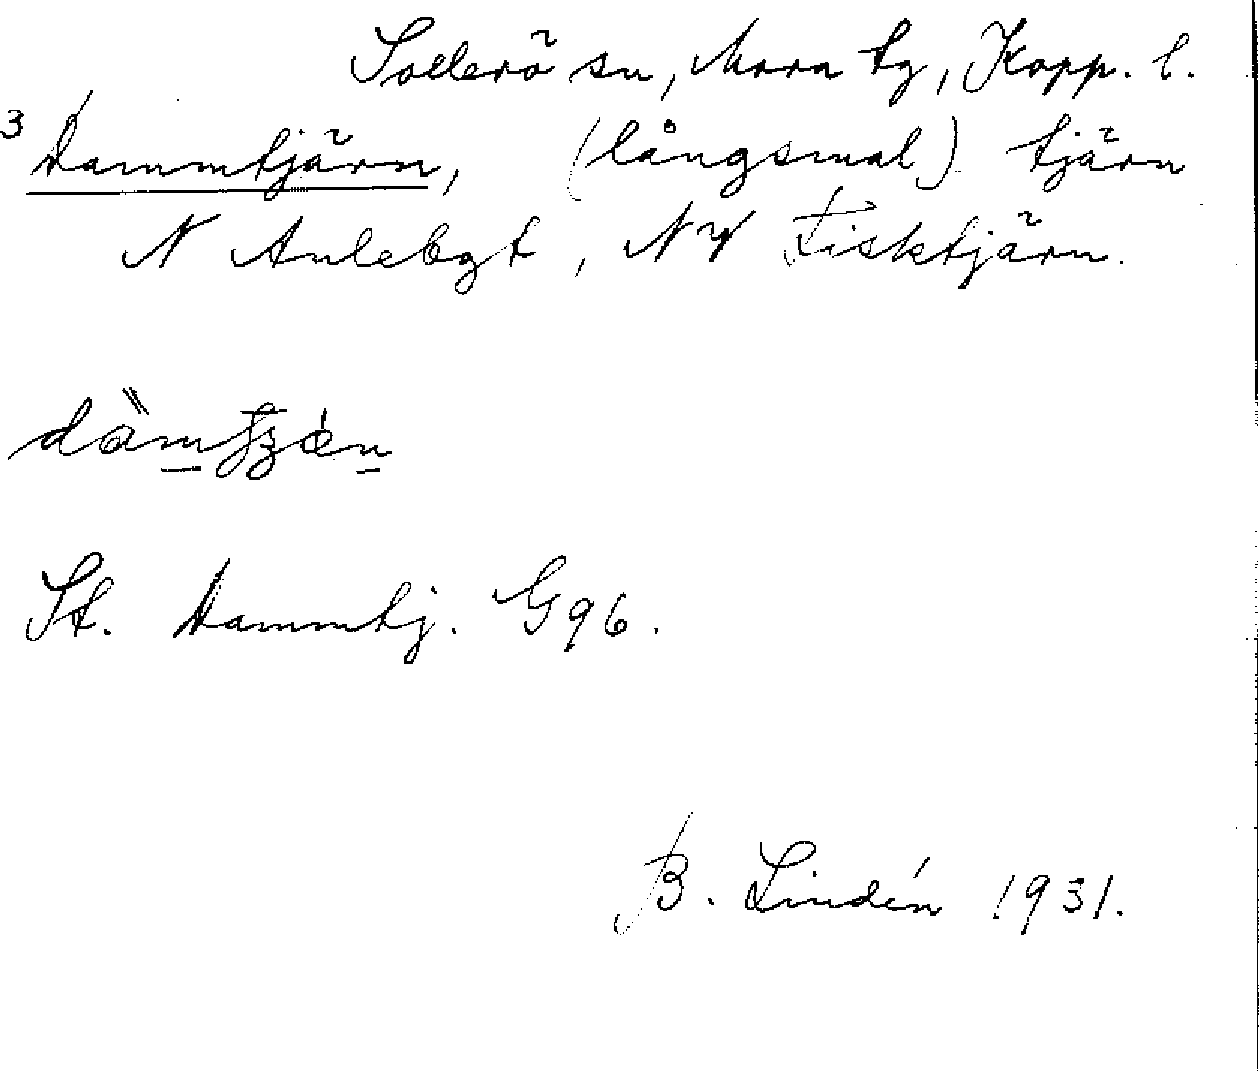 Sollerö sn, Mora tg, Kopp. l.
3 Dammtjärn, (långsmal) tjärn
N Anlebgt, NV Fisktjärn.
St. Dammtj. G96.
B. Lindén 1931.